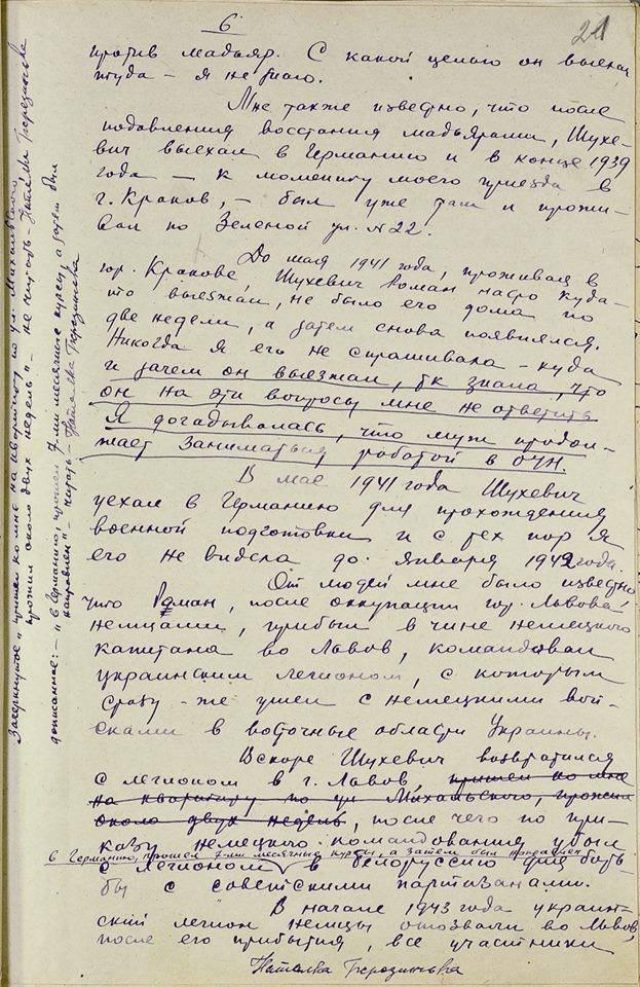 6
21
против мадьяр. С какой целью он выехал
туда – я не знаю.
Мне также известно, что после
подавления восстания мадьярами, Шухе-
вич выехал в Германию и в конце 1939
года – к моменту моего приезда в
г. Краков, – был уже там и прожи-
вал по Зеленой ул. № 22.
До мая 1941 года, проживая в
гор. Кракове, Шухевич Роман часто куда-
то выезжал, не было его дома по
две недели, а затем снова появлялся.
Никогда я его не спрашивала – куда
и зачем он выезжал, тк знала, что
он на эти вопросы мне не ответит.
Я догадывалась, что муж продол-
жает заниматься работой в ОУН.
В мае 1941 года Шухевич
уехал в Германию для прохождения
военной подготовки и с тех пор я
его не видела до января 1942 года.
От людей мне было известно
что Роман, после оккупации гор. Львова
немцами, прибыл в чине немецкого
капитана во Львов, командовал
украинским легионом, с которым
сразу-же ушел с немецкими вой-
сками в восточные области Украины.
Вскоре Шухевич возвратился
с легионом в г. Львов, пришел ко мне
на квартиру по ул. Михальского, прожил
около двух недель, после чего по при-
казу немецкого командования убыл
в Германию, прошел 7-ми месячные курсы, а затем был направлен
с легионом в Белоруссию для борь-
бы с советскими партизанами.
В начале 1943 года украин-
ский легион немцы отозвали во Львов,
после его прибытия, все участники
Наталка Березинська
Зачеркнутое "пришел ко мне на квартиру по ул. Михальского,
прожил около двух недель" – не читать – Наталка Березинська
дописанное: – "в Германию, прошел 7-ми месячные курсы, а затем был
направлен" – читать – Наталка Березинська